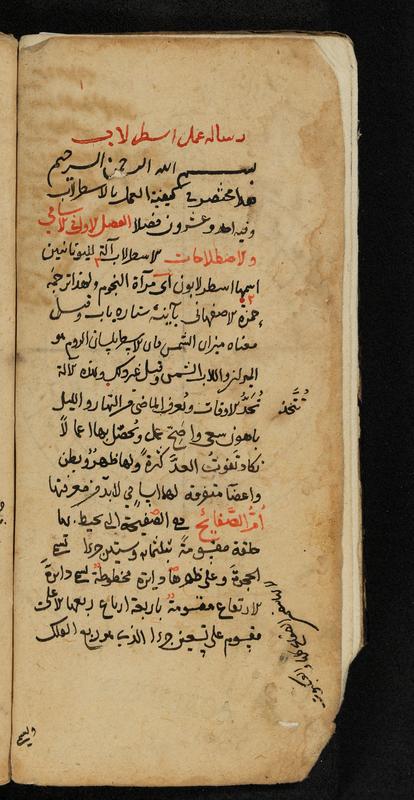 رساله عمل اسطرلاب
بسم الله الرحمن الرحيم
هذا مختصر في كيفية العمل بالاسطرلاب
وفيه احد وعشرون فصلا الفصل الاول في الاسامي
والاصطلاحات الاسطرلاب آلة لليونانيين
اسمها اسطرلابون اى مرآة النجوم ولهذا ترجمه
حمزة الاصفهاني بآينه ستاره ياب وقيل
معناه ميزان الشمس فان الاسطر بلسان الروم هو
الميزان واللاب الشمس وقيل غير ذلك وهذه الآلة
تُتَّخَذُ
تُحَدُّ الاوقات ويُعرف الماضي من النهار والليل
باهون سعي واضح عمل وتحصل بها اعمالا
تكاد تَفوتُ العدَّ كثرةً ولها ظهر وبطن
واعضا متفرقة لها اسامي لابد من معرفتها
اُمُّ الصَّفَائِحُ هي الصفيحة التي يحيط بها
حلقة مقسومة بثلثمائة وستين جزءا تسمى
الحجرةَ وعلى ظهرها دايرة مخطوطة تسمى دايرة
الارتفاع مقسومة باربعة ارباع ربعها الاعلى
مقسوم على تسعين جزءا الذي هو ربع الفلك